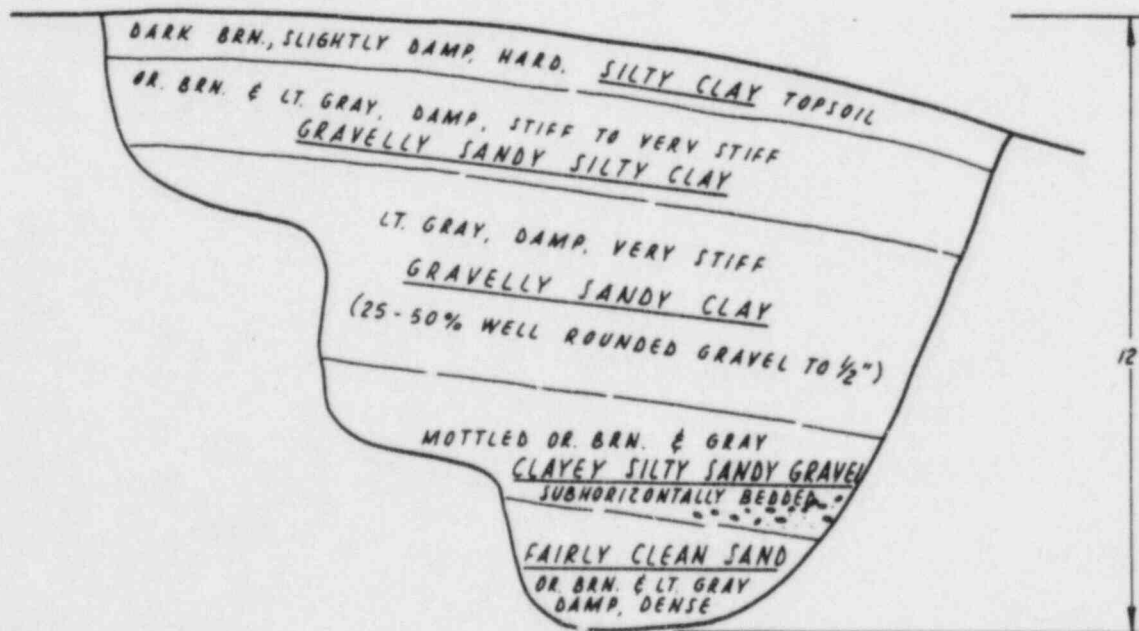 DARK BRN., SLIGHTLY DAMP, HARD, SILTY CLAY TOPSOIL
OR. BRN. & LT. GRAY, DAMP, STIFF TO VERY STIFF
GRAVELLY SANDY SILTY CLAY
LT. GRAY, DAMP, VERY STIFF
GRAVELLY SANDY CLAY
(25-50% WELL ROUNDED GRAVEL TO ½")
12
MOTTLED OR. BRN. & GRAY
CLAYEY SILTY SANDY GRAVEL
SUBHORIZONTALLY BEDDED
FAIRLY CLEAN SAND
OR. BRN. & LT. GRAY
DAMP, DENSE